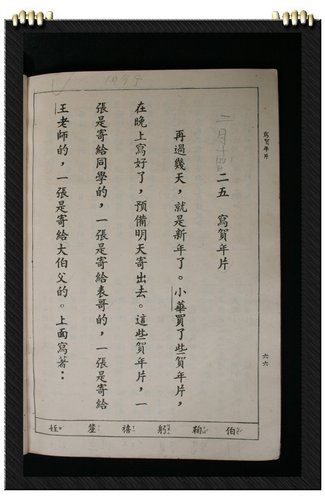 寫賀年片
六六
二五　寫賀年片
再過幾天，就是新年了。小華買了些賀年片，
在晚上寫好了，預備明天寄出去。這些賀年片，一
張是寄給同學的，一張是寄給表哥的，一張是寄給
王老師的，一張是寄給大伯父的。上面寫著：
伯 鞠 躬 禧 鑒 姪